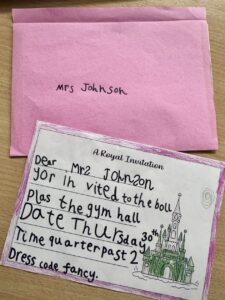 Mrs Johnson
A Royal Invitation
Dear Mrs Johnson
yor in vited to the boll
Plas the gym hall
Date Thursday 30th
Time quarter past 2
Dress code fancy.